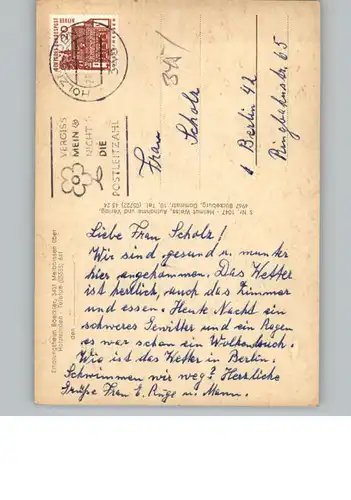 DEUTSCHE BUNDESPOST BERLIN
20
HOLZMINDEN
VERGISS
MEIN
NICHT
DIE
POSTLEITZAHL
3415/
Frau
Scholz
1 Berlin 42
Ringbahnstr. 65
Helmut Weiss, Aufnahme und Verlag,
4967 Bückeburg,
Liebe Frau Scholz!
Wir sind gesund u. munter
hier angekommen. Das Wetter
ist herrlich, auch das Zimmer
und essen. Heute Nacht ein
schweres Gewitter und ein Regen
es war schon ein Wolkenbruch.
Wie ist das Wetter in Berlin.
Schwimmen wir weg? Herzliche
Grüße Frau E. Ruge u. Mann.
den
Erholungsheim
Holzminden - Telefon